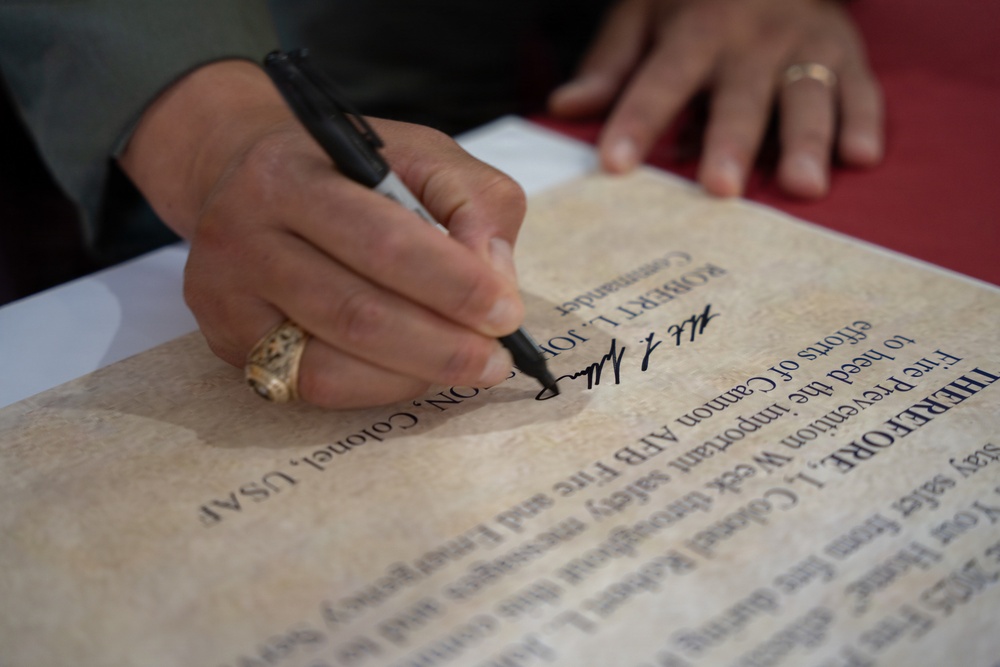 2025 Fire
Your Home"
stay safer from fire during
THEREFORE, I, Colonel Robert L.
Fire Prevention Week throughout this
to heed the important safety messages and
efforts of Cannon AFB Fire and Emergency
ROBERT L. JOH ON, Colonel, USAF
Commander